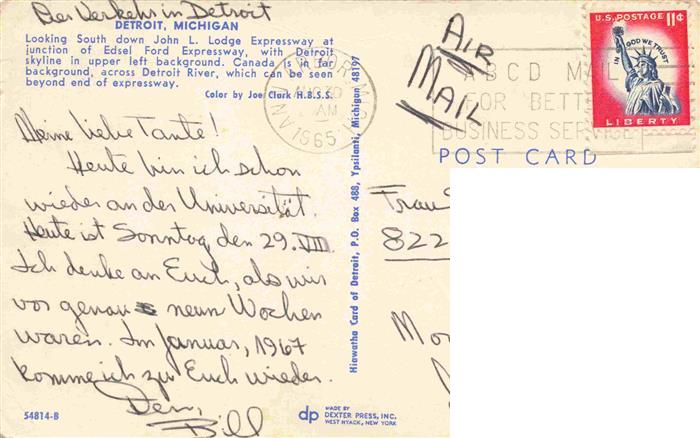 Der Verkehr in Detroit
DETROIT, MICHIGAN
Looking South down John L. Lodge Expressway at
junction of Edsel Ford Expressway, with Detroit
skyline in upper left background. Canada is in far
background, across Detroit River, which can be seen
beyond end of expressway.
Color by Joe Clark H.B.S.S.
Meine liebe Tante!
Heute bin ich schon
wieder an der Universität.
Heute ist Sonntag, den 29. VIII
Ich denke an Euch, als wir
vor genau neun Wochen
waren. Im Januar, 1967
komme ich zu Euch wieder.
Dein,
Bill
54814-B
Hiawatha Card of Detroit, P.O. Box 488, Ypsilanti, Michigan 48197
dp MADE BY
DEXTER PRESS, INC.
WEST NYACK, NEW YORK
ANN ARBOR, MICH.
AUG 30
AM
1965
AIR
MAIL
ABCD MAIL
FOR BETTER
BUSINESS SERVICE
U.S. POSTAGE 11¢
IN GOD WE TRUST
LIBERTY
POST CARD
Frau
822